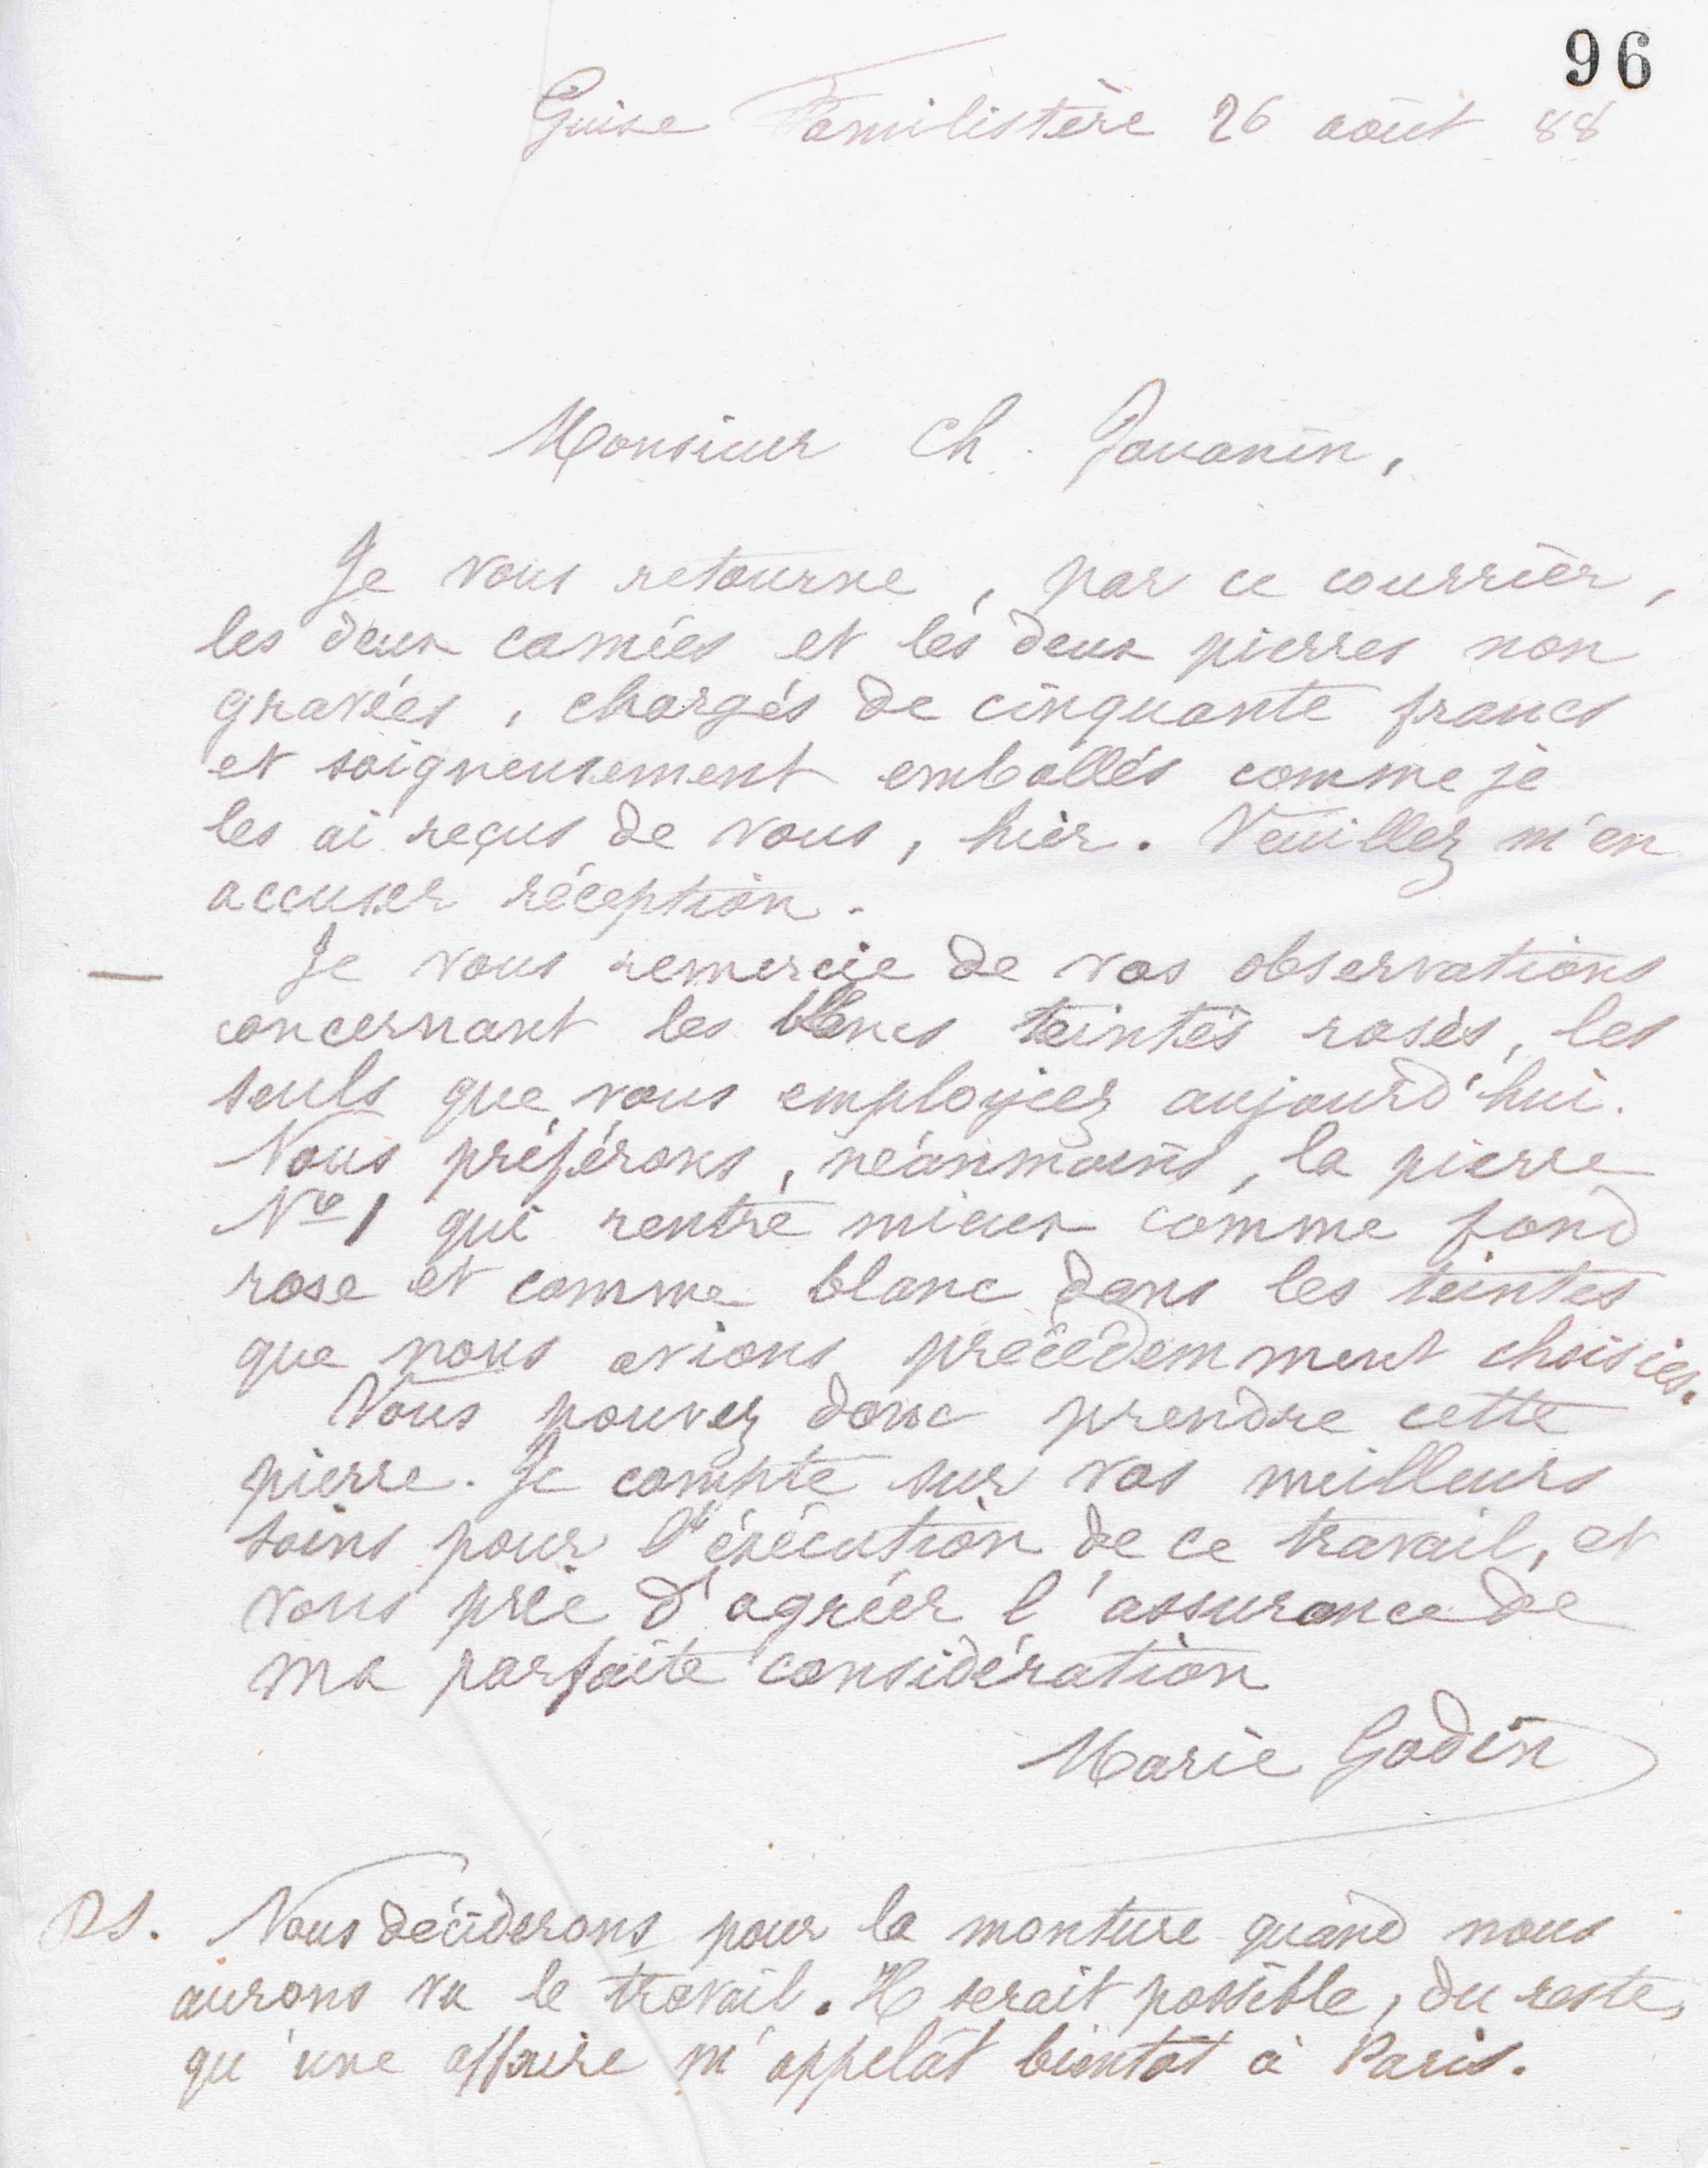 96
Guise Familistère 26 août 88
Monsieur Ch. Jouanin,
Je vous retourne, par ce courrier,
les deux camées et les deux pierres non
gravées, chargés de cinquante francs
et soigneusement emballés comme je
les ai reçus de vous, hier. Veuillez m'en
accuser réception.
— Je vous remercie de vos observations
concernant les blancs teintés rosés, les
seuls que vous employiez aujourd'hui.
Nous préférons, néanmoins, la pierre
No 1 qui rentre mieux comme fond
rose et comme blanc dans les teintes
que nous avions précédemment choisies.
Vous pouvez donc prendre cette
pierre. Je compte sur vos meilleurs
soins pour l'exécution de ce travail, et
vous prie d'agréer l'assurance de
ma parfaite considération
Marie Godin
PS. Nous déciderons pour la monture quand nous
aurons vu le travail. Il serait possible, du reste,
qu'une affaire m'appelât bientôt à Paris.